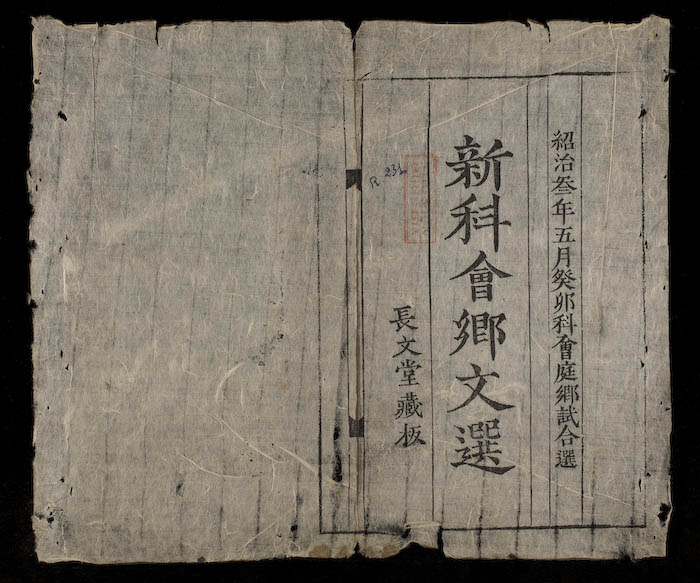 紹治叄年五月癸卯科會庭鄉試合選
新科會鄉文選
長文堂藏板
R 231